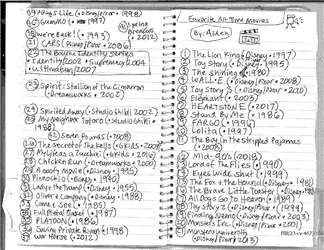 39 A Bugs Life (•Disney/Pixar •1998)
40 GUMMO (•1997)
41 Spring Breakers (•2012)
38 We're Back! (•1993)
21 CARS (Disney/Pixar •2006)
22 The Bourne Identity Series
•Identity/2002 •Supremacy/2004
•Ultimatum/2007
23 Spirit: Stallion of the Cimarron
(•Dreamworks •2002)
24 Spirited Away (•Studio Ghibli •2002)
25 My Neighbor Totoro (•Studio Ghibli
•1988)
42 Seven Pounds (•2008)
26 The Secret of the Kells (•GKids •2009)
27 My Life as a Zucchini (•GKids •2016)
28 Chicken Run (•Dreamworks •2000)
29 A Goofy Movie (•Disney •1995)
30 Pinocchio (•Disney •1940)
31 Lady & the Tramp (•Disney •1955)
32 Oliver & Company (•Disney •1988)
33 Come & See (•1985)
34 Full Metal Jacket (•1987)
35 PLATOON (•1986)
36 Saving Private Ryan (•1998)
37 War Horse (•2012)
Favorite All-Time Movies
By: Aiden
PG. 1
1 The Lion King (•Disney •1994)
2 Toy Story (•Disney •1995)
3 The Shining (•1980)
4 WALL-E (•Disney/Pixar •2008)
5 Toy Story 3 (•Disney/Pixar •2010)
6 Elephant (•2003)
7 HEARTSTONE (•2017)
8 Stand By Me (•1986)
9 FARGO (•1996)
10 Lolita (•1997)
11 The Boy in the Striped Pajamas
(•2008)
12 Mid-90's (2018)
13 Lord of the Flies (•1990)
14 Eyes Wide Shut (•1999)
15 The Fox & the Hound (•Disney •1981)
16 The Brave Little Toaster (•Disney •1987)
17 All Dogs Go to Heaven (•1989)
18 Toy Story 2 (•Disney/Pixar •1999)
19 Finding Nemo (•Disney/Pixar •2003)
20 Monsters Inc. (•Disney/Pixar •2001)
21 Monsters University
(•Disney/Pixar •2013)